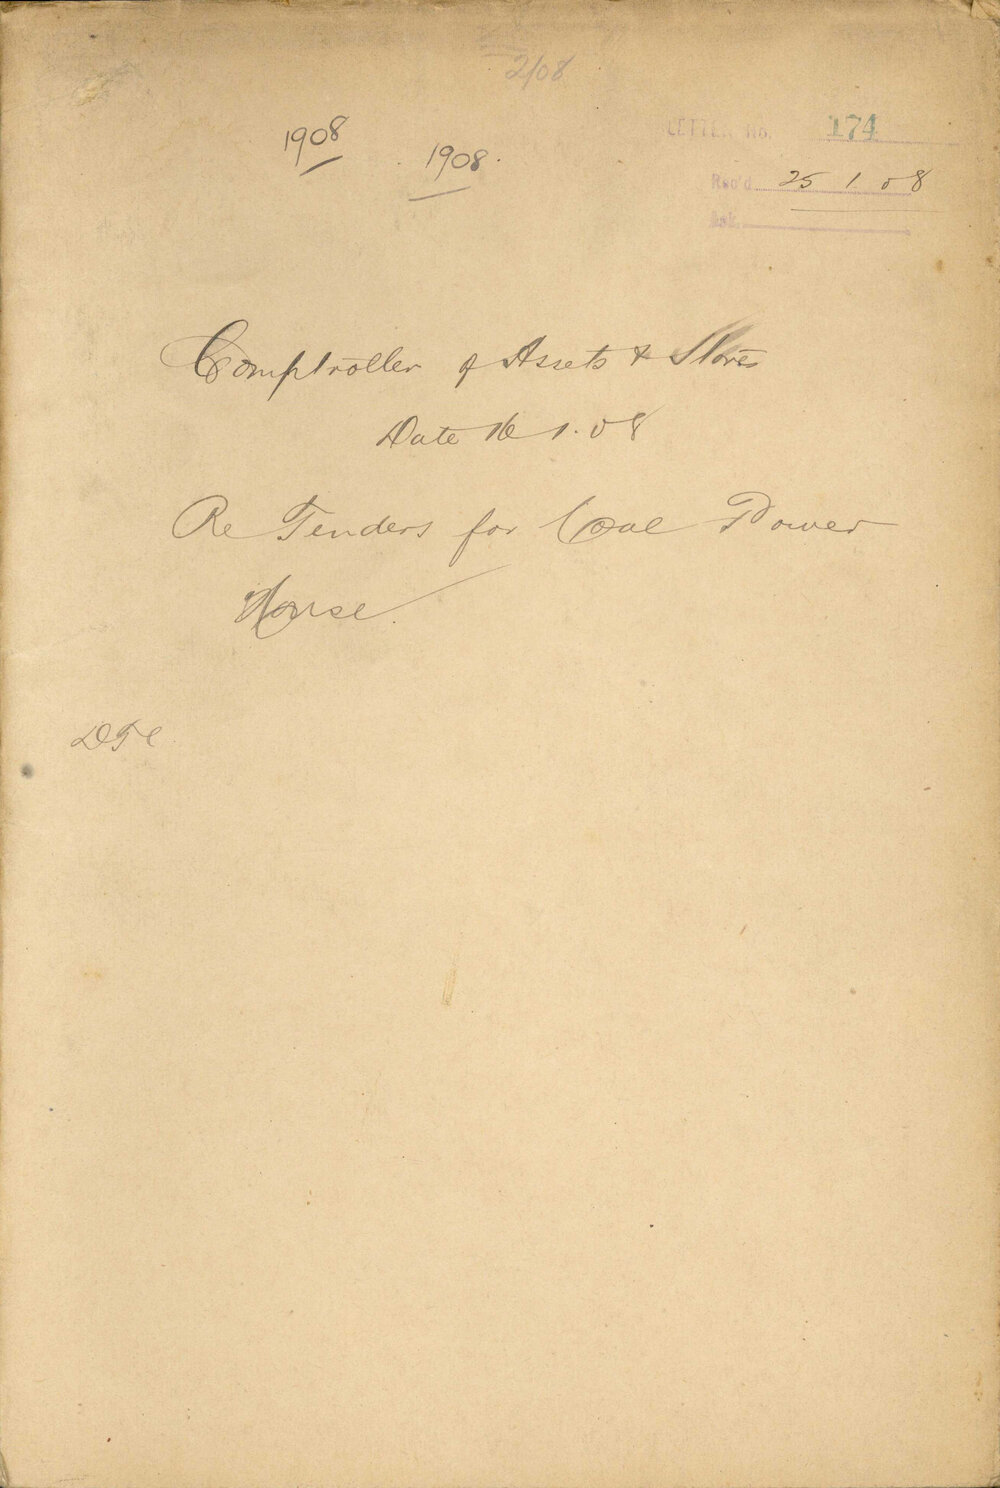 2/08
1908
1908
LETTER No. 174
Rec'd 25 1 08
Ack.
Comptroller of Assets & Stores
Date 16 1.08
Re Tenders for Coal Power
House.